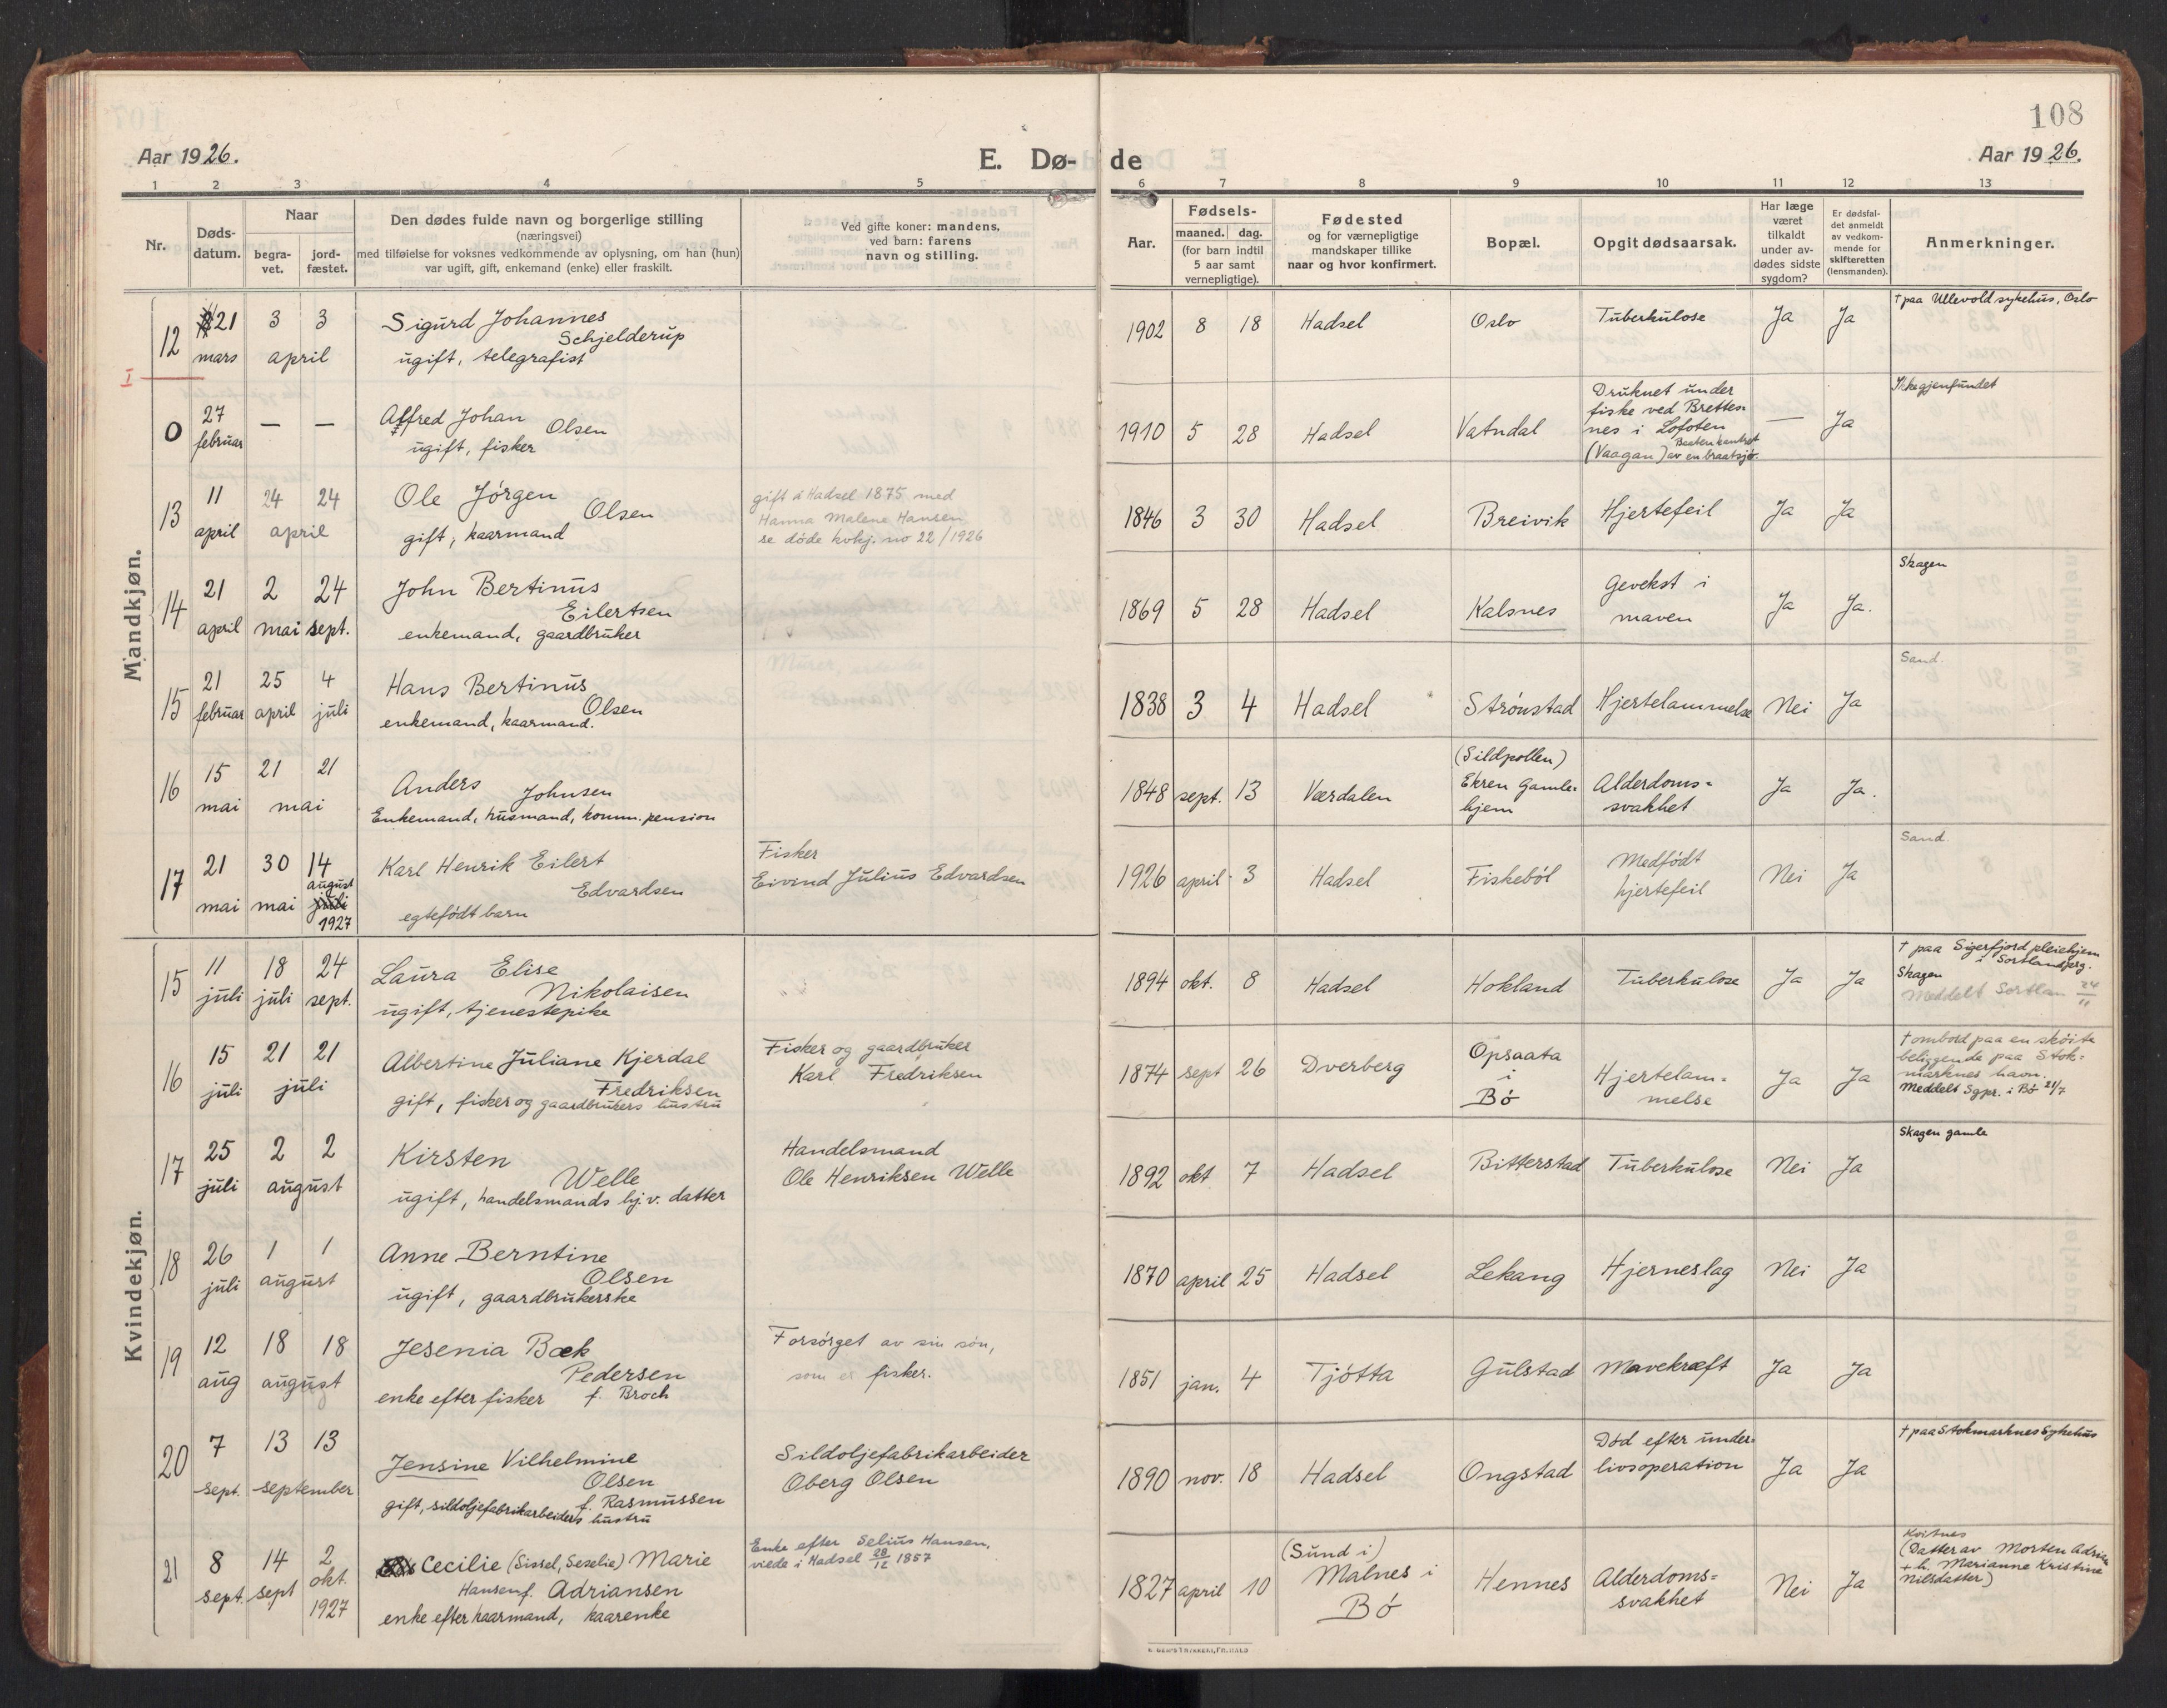 108
Aar 1926.
E. Dø-de
Aar 1926.
1 2 3 4 5 6 7 8 9 10 11 12 13
Nr.
Døds-
datum.
Naar
begra-
vet.
jord-
fæstet.
Den dødes fulde navn og borgerlige stilling
(næringsvei)
med tilføielse for voksnes vedkommende av oplysning, om han (hun)
var ugift, gift, enkemand (enke) eller fraskilt.
Ved gifte koner: mandens,
ved barn: farens
navn og stilling.
Aar.
Fødsels-
maaned. dag.
(for barn indtil
5 aar samt
vernepligtige).
Fødested
og for værnepligtige
mandskaper tillike
naar og hvor konfirmert.
Bopæl.
Opgit dødsaarsak.
Har læge
været
tilkaldt
under av-
dødes sidste
sygdom?
Er dødsfal-
det anmeldt
av vedkom-
mende for
skifteretten
(lensmanden).
Anmerkninger.
Mandkjøn.
12
21
mars
3 3
april
Sigurd Johannes
Schjelderup
ugift, telegrafist
1902 8 18 Hadsel Oslo Tuberkulose Ja Ja
† paa Ullevold sykehus, Oslo
I
0
27
februar
— —
Alfred Johan
Olsen
ugift, fisker
1910 5 28 Hadsel Vatndal
Druknet under
fiske ved Brettes-
nes i Lofoten
Baaten kantret
(Vaagan) av en braatsjø.
— Ja
Ikke gjenfundet
13
11
april
24 24
april
Ole Jørgen
Olsen
gift, kaarmand
gift i Hadsel 1875 med
Hanna Malene Hansen
se døde kvkj. no 22/1926
1846 3 30 Hadsel Breivik Hjertefeil Ja Ja
14
21
april
2
mai
24
sept.
John Bertinus
Eilertsen
enkemand, gaardbruker
1869 5 28 Hadsel Kalsnes
Gevekst i
maven
Ja Ja.
Skagen
15
21
februar
25
april
4
juli
Hans Bertinus
Olsen
enkemand, kaarmand.
1838 3 4 Hadsel Strønstad Hjertelammelse Nei Ja
Sand
16
15
mai
21 21
mai
Anders
Johnsen
Enkemand, husmand, komm. pension
1848 sept. 13 Værdalen
(Sildpollen)
Ekren Gamle-
hjem
Alderdoms-
svakhet
Ja Ja.
17
21
mai
30
mai
14
august
juli
1927
Karl Henrik Eilert
Edvardsen
egtefødt barn
Fisker
Eivind Julius Edvardsen
1926 april 3 Hadsel Fiskebøl
Medfødt
hjertefeil
Nei Ja
Sand
Kvindekjøn.
15
11
juli
18
juli
24
sept.
Laura Elise
Nikolaisen
ugift, tjenestepike
1894 okt. 8 Hadsel Hokland Tuberkulose Ja Ja
† paa Sigerfjord pleiehjem
i Sortland
Skagen
Meddelt Sortlan 24/11
16
15
juli
21 21
juli
Albertine Juliane Kjerdal
Fredriksen
gift, fisker og gaardbrukers hustru
Fisker og gaardbruker
Karl Fredriksen
1874 sept 26 Dverberg
Opsaata
i
Bø
Hjertelam-
melse
Ja Ja
† ombord paa en skøite
beliggende paa Stok-
marknes havn.
Meddelt Sgpr. i Bø 21/7
17
25
juli
2 2
august
Kirsten
Welle
ugift, handelsmands hj. v. datter
Handelsmand
Ole Henriksen Welle
1892 okt 7 Hadsel Bitterstad Tuberkulose Nei Ja
Skagen gamle
18
26
juli
1 1
august
Anne Berntine
Olsen
ugift, gaardbrukerske
1870 april 25 Hadsel Lekang Hjerneslag Nei Ja
19
12
aug
18 18
august
Jesenia Bæk
Pedersen
enke efter fisker f. Broch
Forsørget av sin søn,
som er fisker.
1851 jan. 4 Tjøtta Gulstad Mavekræft Ja Ja
20
7
sept.
13 13
september
Jensine Vilhelmine
Olsen
f. Rasmussen
gift, sildoljefabrikarbeiders hustru
Sildoljefabrikarbeider
Oberg Olsen
1890 nov. 18 Hadsel Ongstad
Død efter under-
livsoperation
Ja Ja
† paa Stokmarknes Sykehus
21
8
sept.
14
sept
2
okt.
1927
Cecilie (Sissel, Seselie) Marie
Hansen f. Adriansen
enke efter kaarmand, kaarenke
Enke efter Selius Hansen,
viede i Hadsel 28/12 1857
1827 april 10
(Sund i)
Malnes i
Bø
Hennes
Alderdoms-
svakhet
Nei Ja
Kvitnes
(Datter av Morten Adrian
+ h. Marianne Kristine
Nilsdatter)